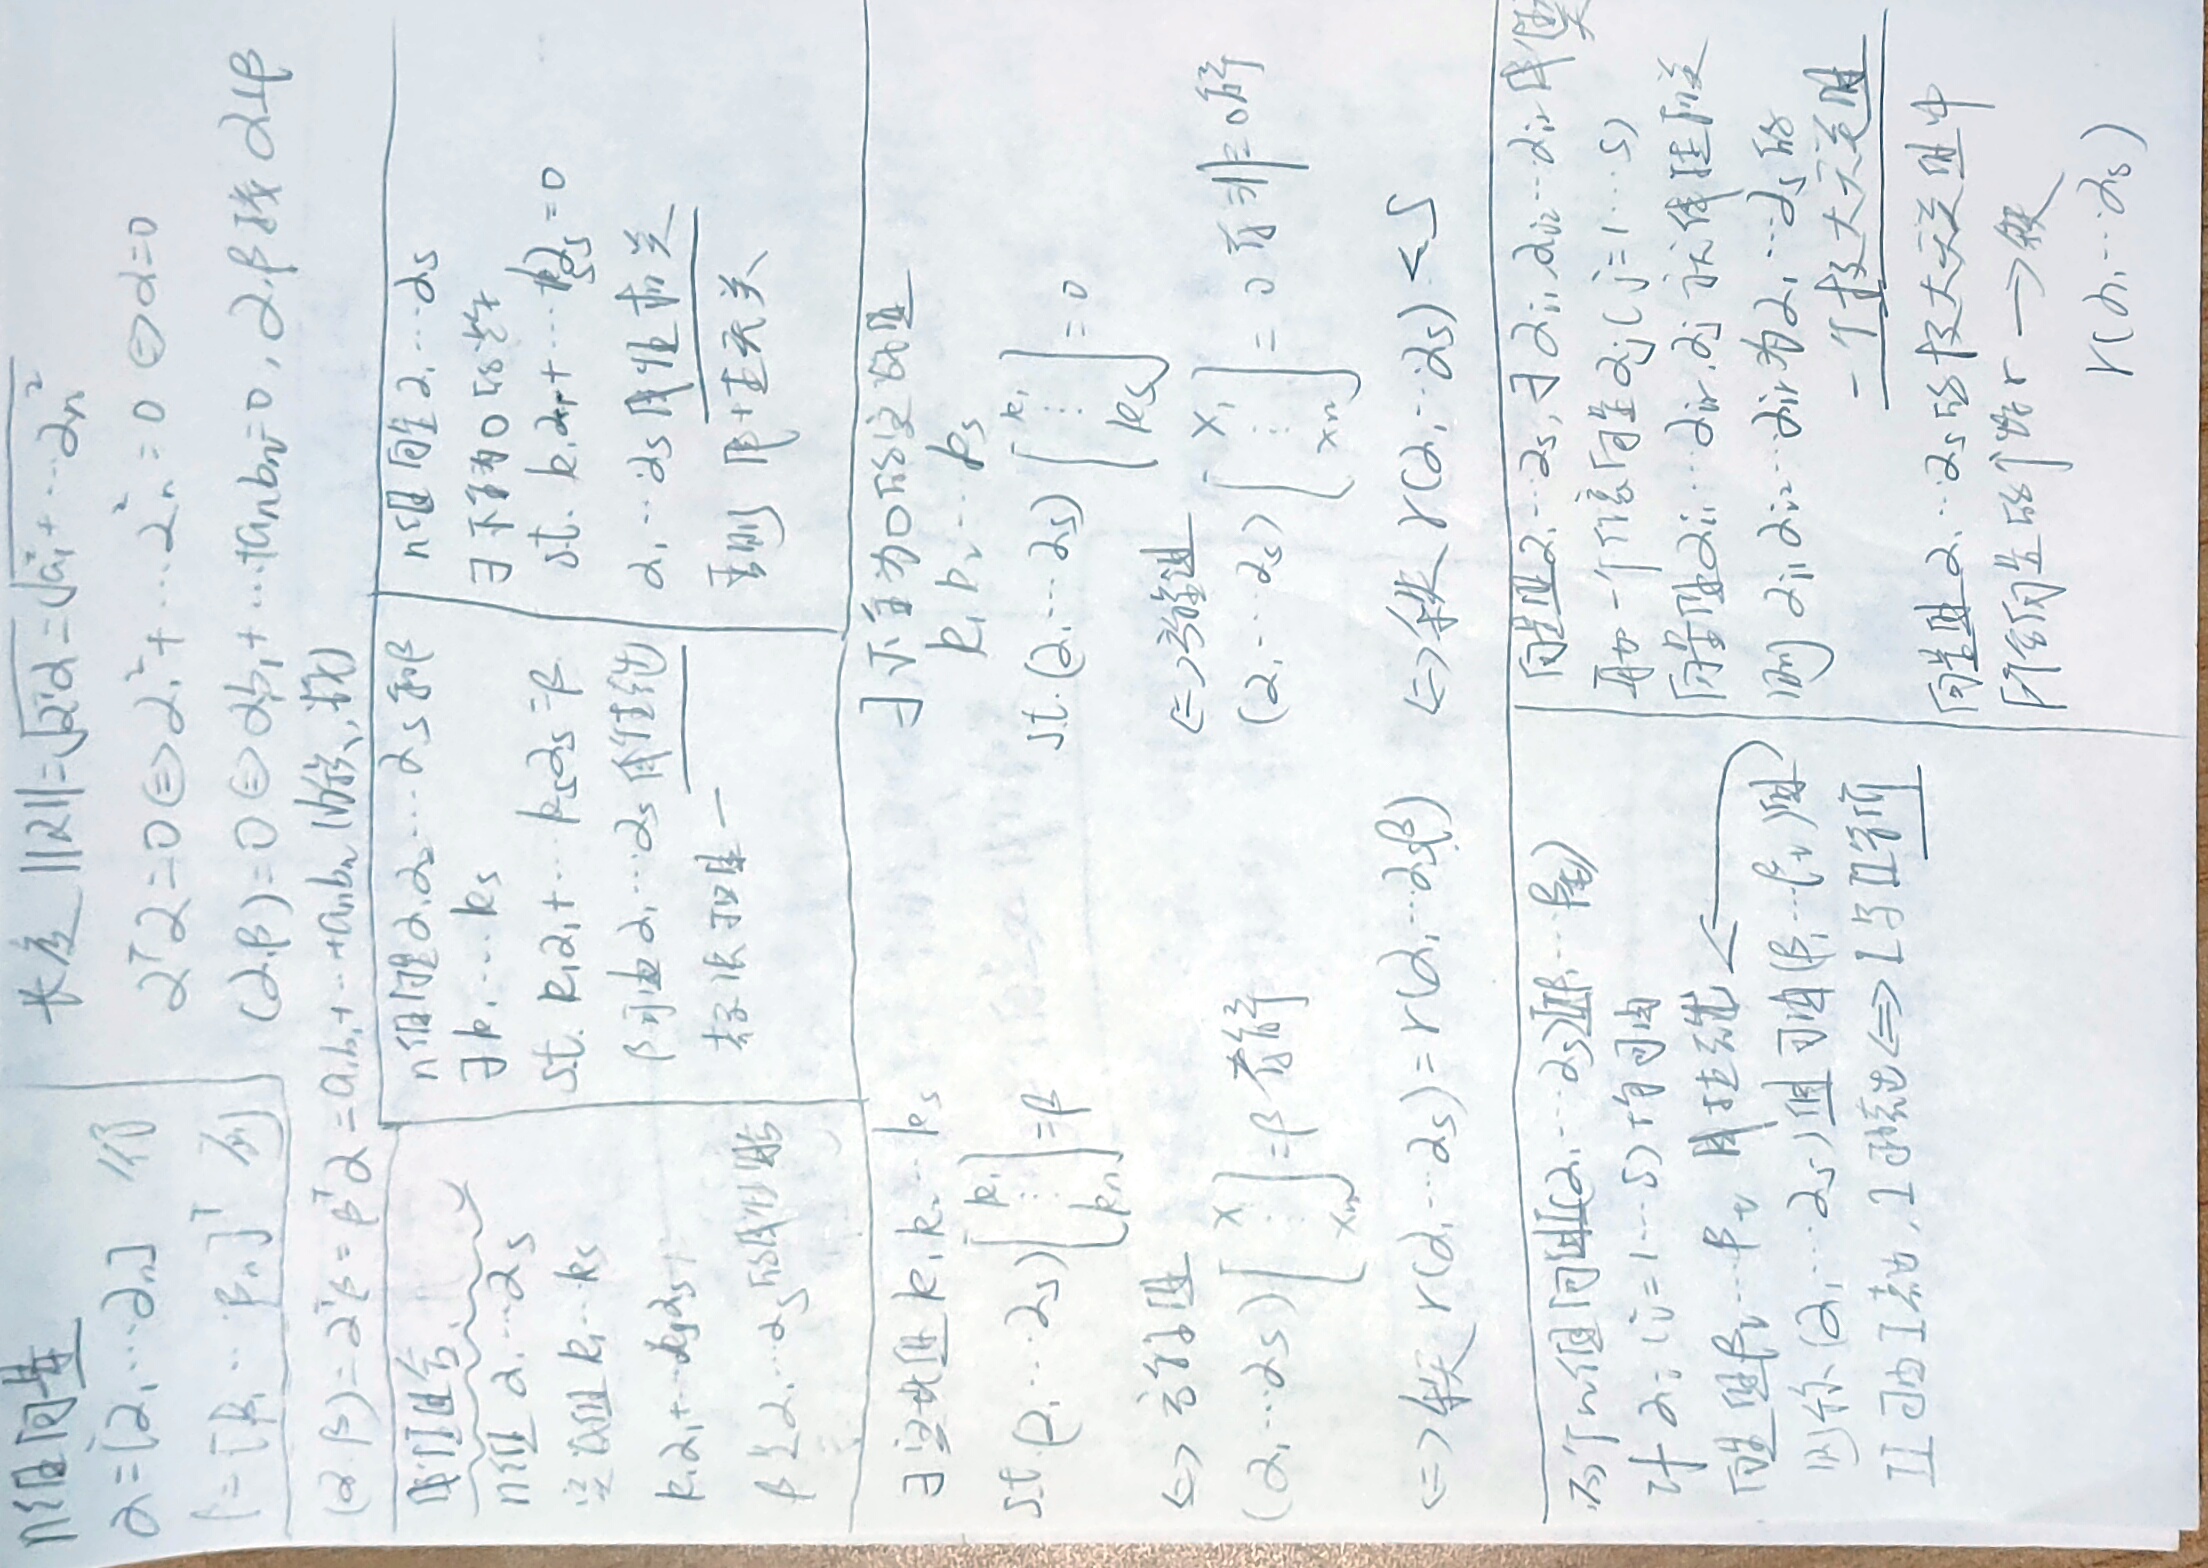 n维向量
α=[α₁…αₙ] 行
β=[β₁…βₙ]ᵀ 列
长度 ||α||=√αᵀα=√a₁²+…aₙ²
αᵀα=0⇔a₁²+…aₙ²=0⇔α=0
(α.β)=0⇔a₁b₁+…+aₙbₙ=0, α.β正交 α⊥β
(α.β)=αᵀβ=βᵀα=a₁b₁+…+aₙbₙ (内积,数)
线性组合
n维 α₁…αₛ
实数组 k₁…kₛ
k₁α₁+…kₛαₛ
β是α₁…αₛ的线性组合
n维向量α₁α₂…αₛ和β
∃k₁…kₛ
s.t. k₁α₁+…kₛαₛ=β
β可由α₁…αₛ线性表出
表法不唯一
n维向量α₁…αₛ
∃不全为0的数
s.t. k₁α₁+…kₛαₛ=0
α₁…αₛ线性相关
否则 线性无关
∃实数组k₁k₂…kₛ
s.t.(α₁…αₛ)[k₁⋮kₙ]=β
⇔方程组
(α₁…αₛ)[x⋮xₙ]=β 有解
⇔秩 r(α₁…αₛ)=r(α₁…αₛβ)
∃不全为0的实数组
k₁k₂…kₛ
s.t.(α₁…αₛ)[k₁⋮kₛ]=0
⇔方程组
(α₁…αₛ)[x₁⋮xₙ]=0有非0解
⇔秩 r(α₁…αₛ)<s
两个n维向量组I(α₁…αₛ)II(β₁…βₜ)
对αᵢ(i=1…s)均可由
向量组β₁…βₜ线性表出
则称(α₁…αₛ)组可由(β₁…βₜ)组
II可由I表出,I可表出⇔I与II等价
向量组α₁…αₛ,∃αᵢ₁,αᵢ₂…αᵢᵣ线性无关
再加一个任意向量αⱼ(j=1…s)
向量组αᵢ₁…αᵢᵣ,αⱼ就线性相关
则αᵢ₁αᵢ₂…αᵢᵣ为α₁…αₛ的
一个极大无关组
向量组α₁…αₛ的极大无关组中
所含向量的个数r→秩
r(α₁…αₛ)